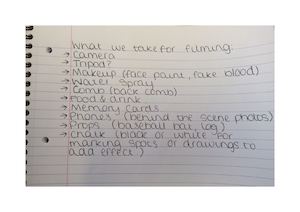 What we take for filming:
→ Camera
→ Tripod?
→ Makeup (face paint, fake blood)
→ Water spray
→ Comb (back comb)
→ Food & drink
→ Memory Cards
→ Phones (behind the scene photos)
→ Props (baseball bat, log)
→ Chalk (black or white for
marking spots or drawings to
add effect)